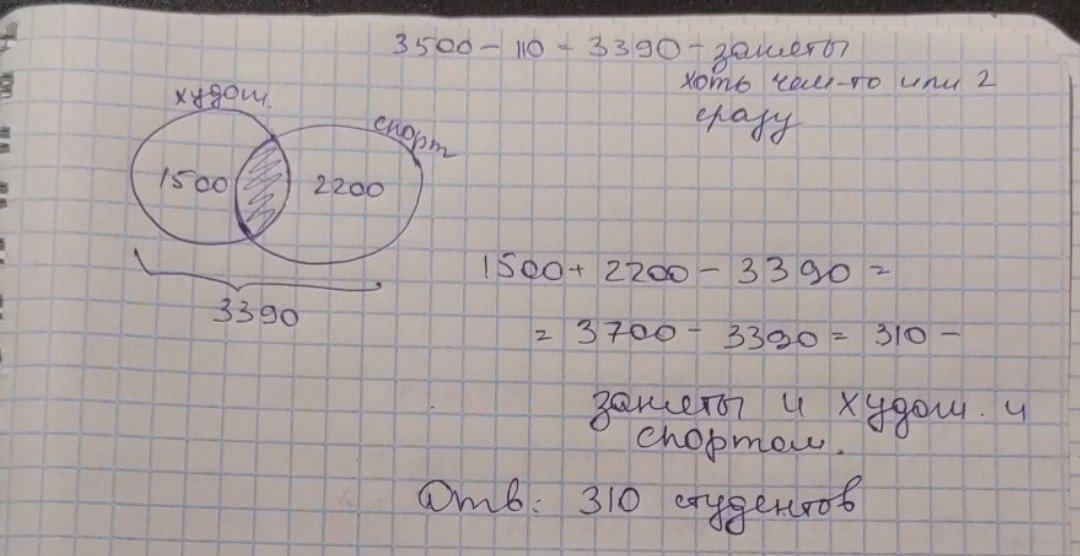 3500 - 110 = 3390 - заняты
хоть чем-то или 2
сразу
худож.
спорт
1500
2200
3390
1500 + 2200 - 3390 =
= 3700 - 3390 = 310 -
заняты и худож. и
спортом.
Отв: 310 студентов